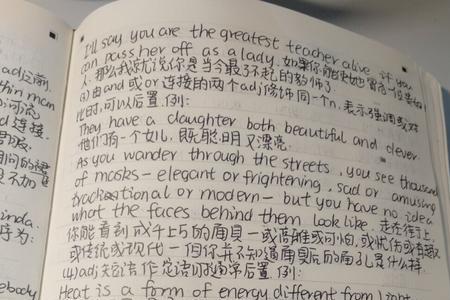 I'll say you are the greatest teacher alive if you
can pass her off as a lady. 如果你能使她冒充一位贵妇
人,那么我就说你是当今最了不起的教师了.
(3)由and或or连接的两个adj修饰同一个n,表示强调或对
比时,可以后置.例:
They have a daughter both beautiful and clever.
他们有一个女儿,既聪明又漂亮.
As you wander through the streets, you see thousand
of masks - elegant or frightening, sad or amusing
traditional or modern - but you have no idea
what the faces behind them look like. 走在街上,
你能看到成千上万的面具一或高雅或可怕,或忧伤或有趣
或传统或现代一但你并不知道面具后的面孔是什么样.
(4)adj短语作定语时通常后置.例:
Heat is a form of energy different from light
adj之前,
thin man
连接
inda.
序为:
ebody